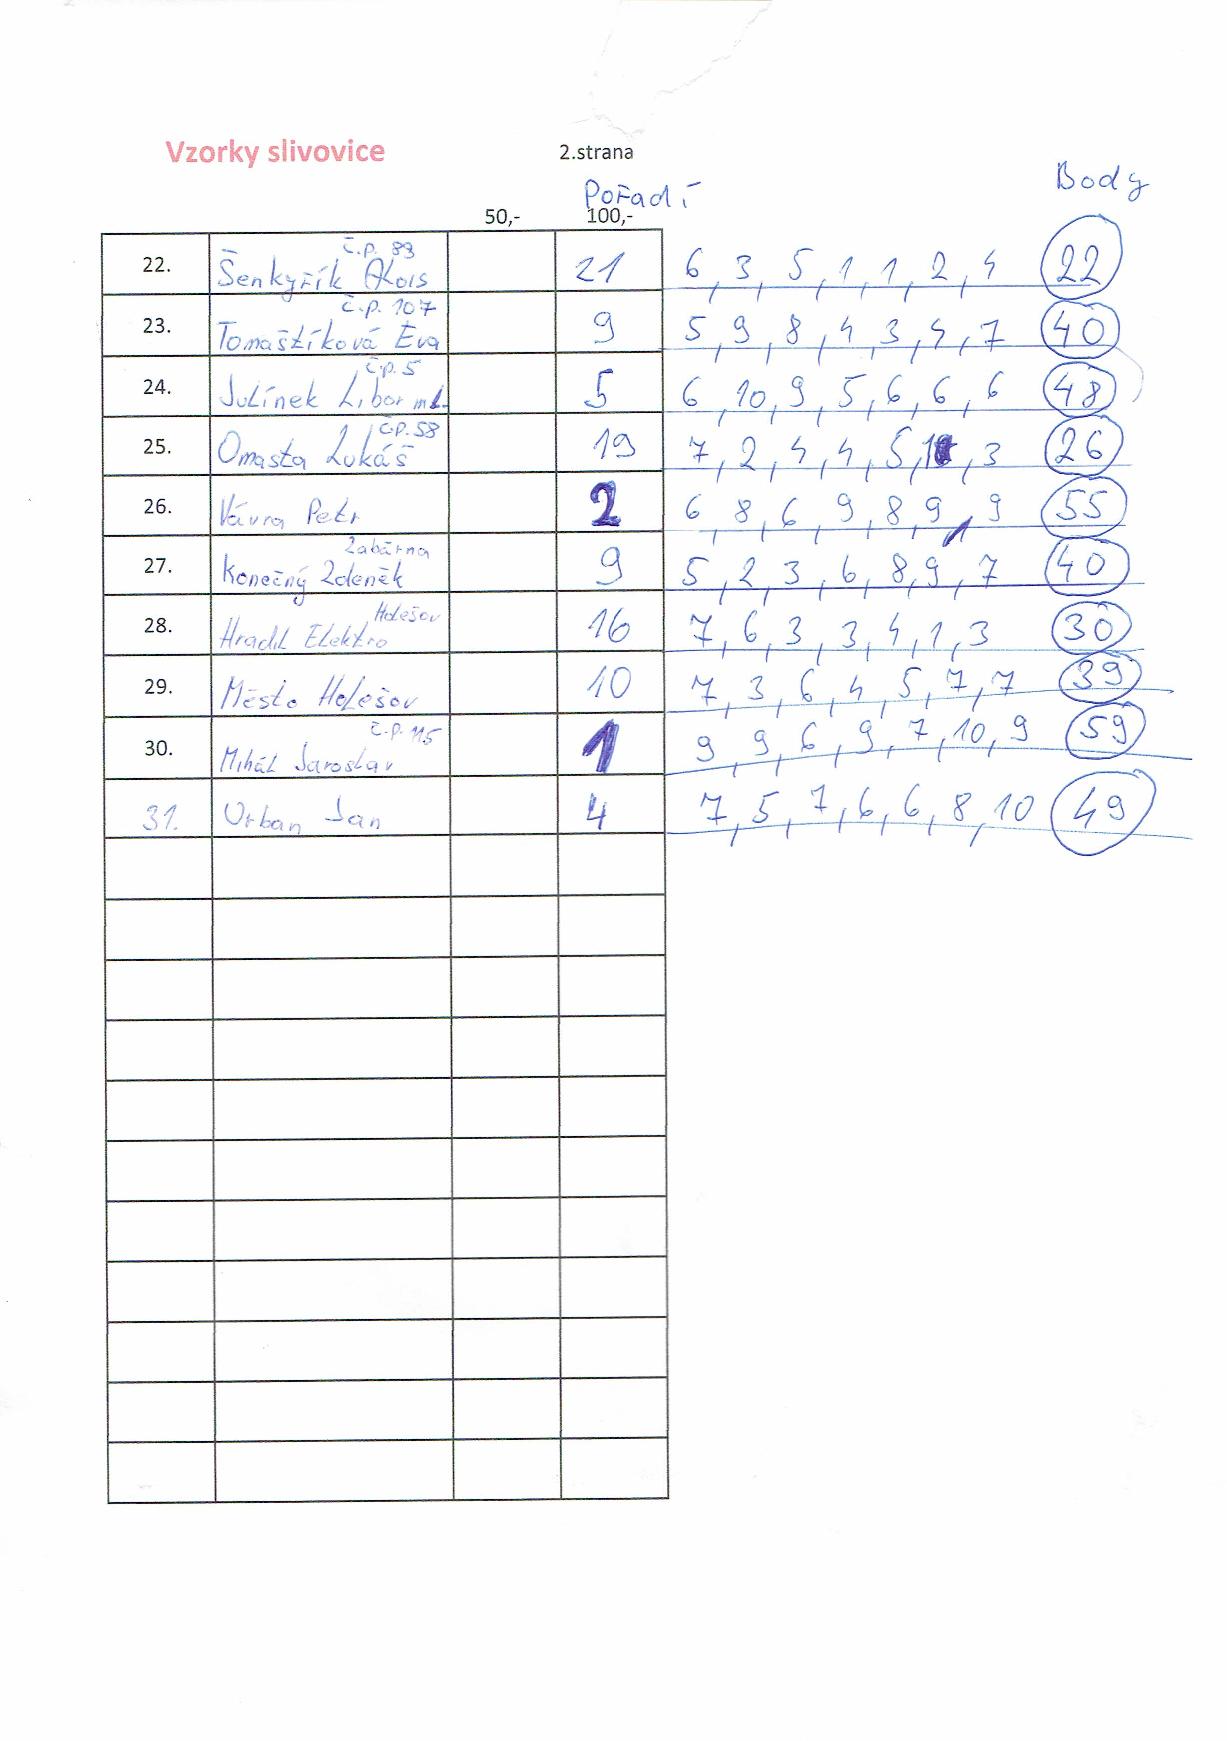 Vzorky slivovice 2.strana
Pořadí Body
50,- 100,-
22. Šenkyřík Alois č.p. 83 21 6, 3, 5, 1, 1, 2, 4 22
23. Tomaštíková Eva č.p. 107 9 5, 9, 8, 4, 3, 4, 7 40
24. Julínek Libor ml. č.p. 5 5 6, 10, 9, 5, 6, 6, 6 48
25. Omasta Lukáš č.p. 58 19 7, 2, 4, 4, 5, 1, 3 26
26. Vávra Petr 2 6, 8, 6, 9, 8, 9, 9 55
27. Konečný Zdeněk Zabárna 9 5, 2, 3, 6, 8, 9, 7 40
28. Hradil Elektro Holešov 16 7, 6, 3, 3, 4, 1, 3 30
29. Město Holešov 10 7, 3, 6, 4, 5, 7, 7 39
30. Mihál Jaroslav č.p. 115 1 9, 9, 6, 9, 7, 10, 9 59
31. Urban Jan 4 7, 5, 7, 6, 6, 8, 10 49